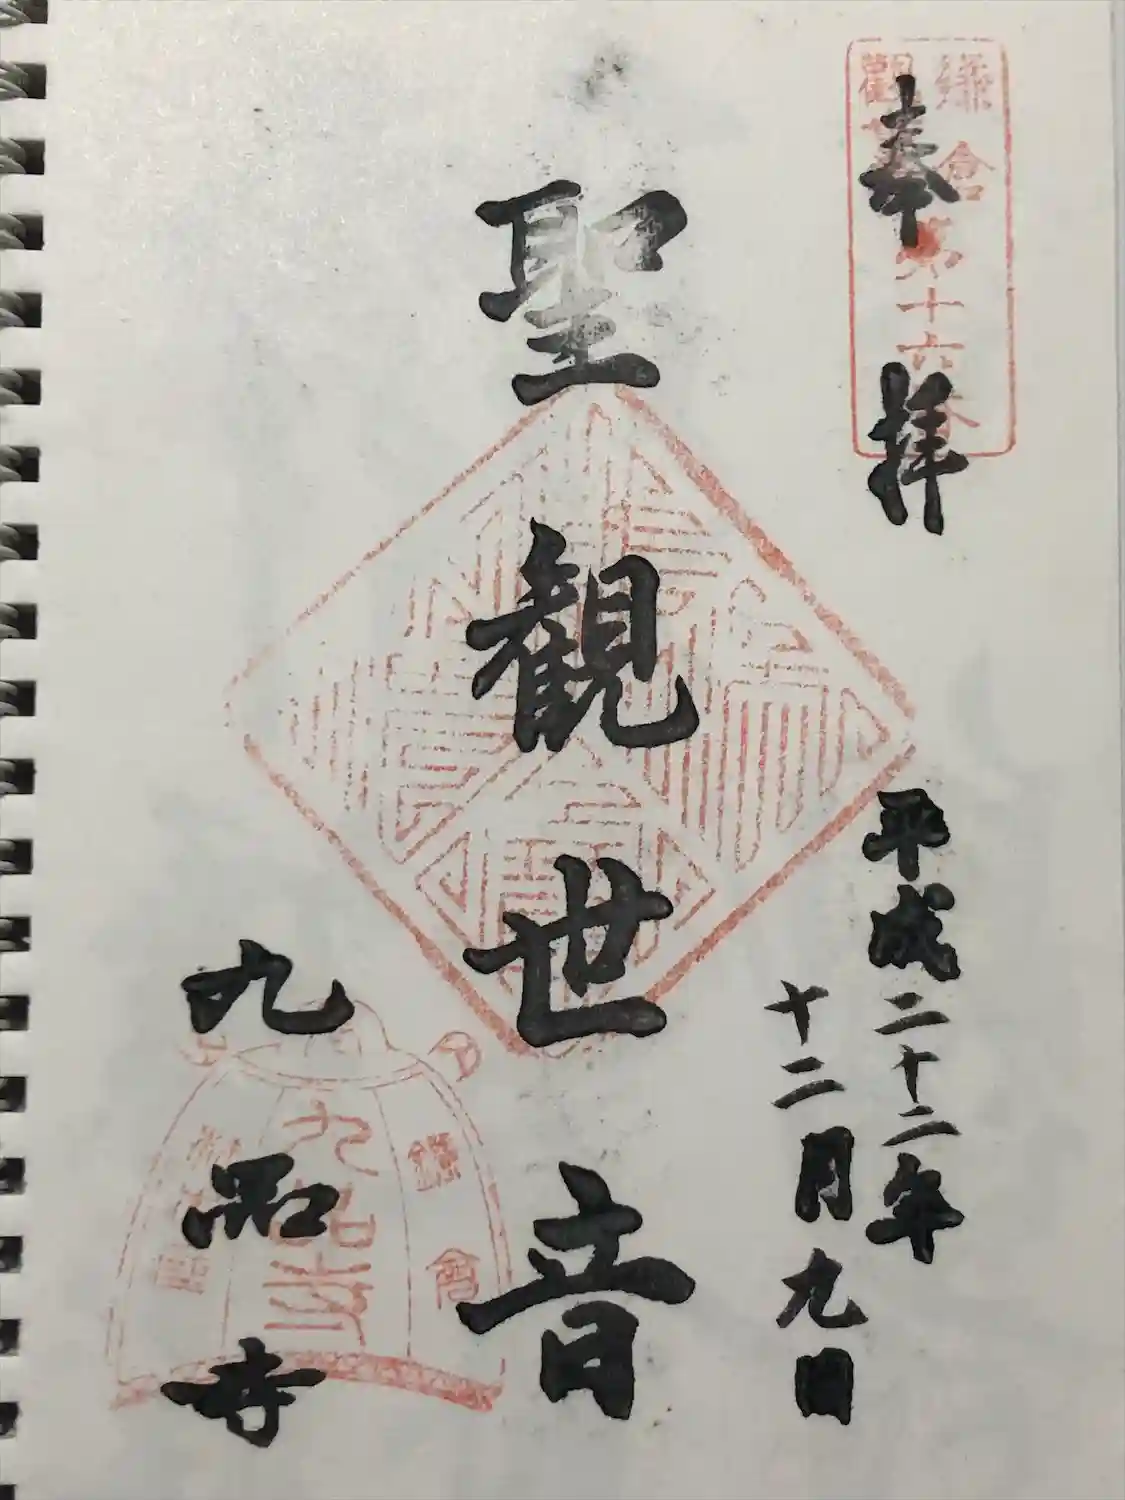 奉拝
鎌倉
観
第十六番
平成二十二年
十二月九日
聖観世音
九品寺
鎌倉
九品寺